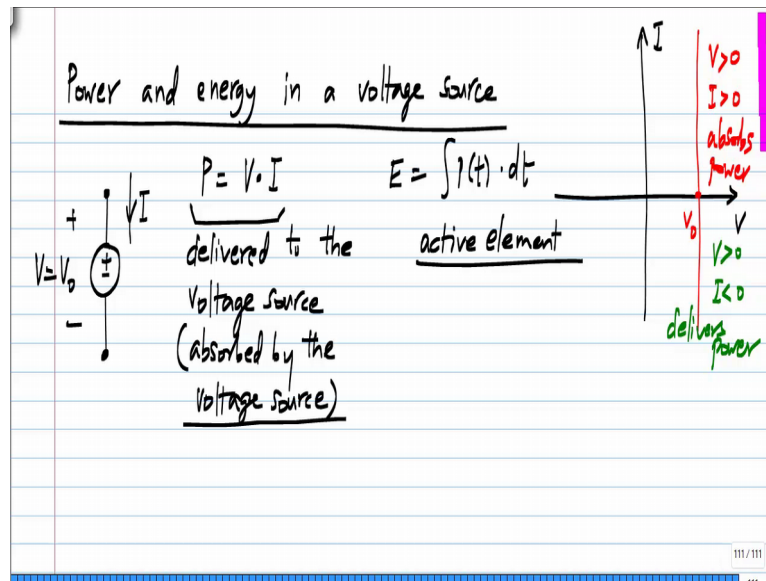 Power and energy in a voltage source
P = V · I
E = ∫ P(t) · dt
delivered to the
voltage source
(absorbed by the
voltage source)
active element
+
I
V = V₀
±
−
I
V>0
I>0
absorbs
power
V₀
V
V>0
I<0
delivers
power
111 / 111